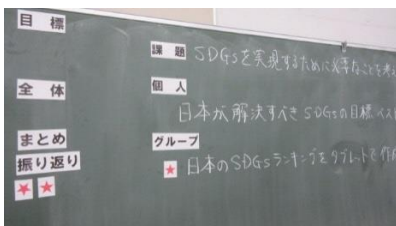 目標
課題 SDGsを実現するために必要なことを考え
全体 個人
日本が解決すべきSDGsの目標ベスト
まとめ グループ
振り返り
★ 日本のSDGsランキングをタブレットで作
★★